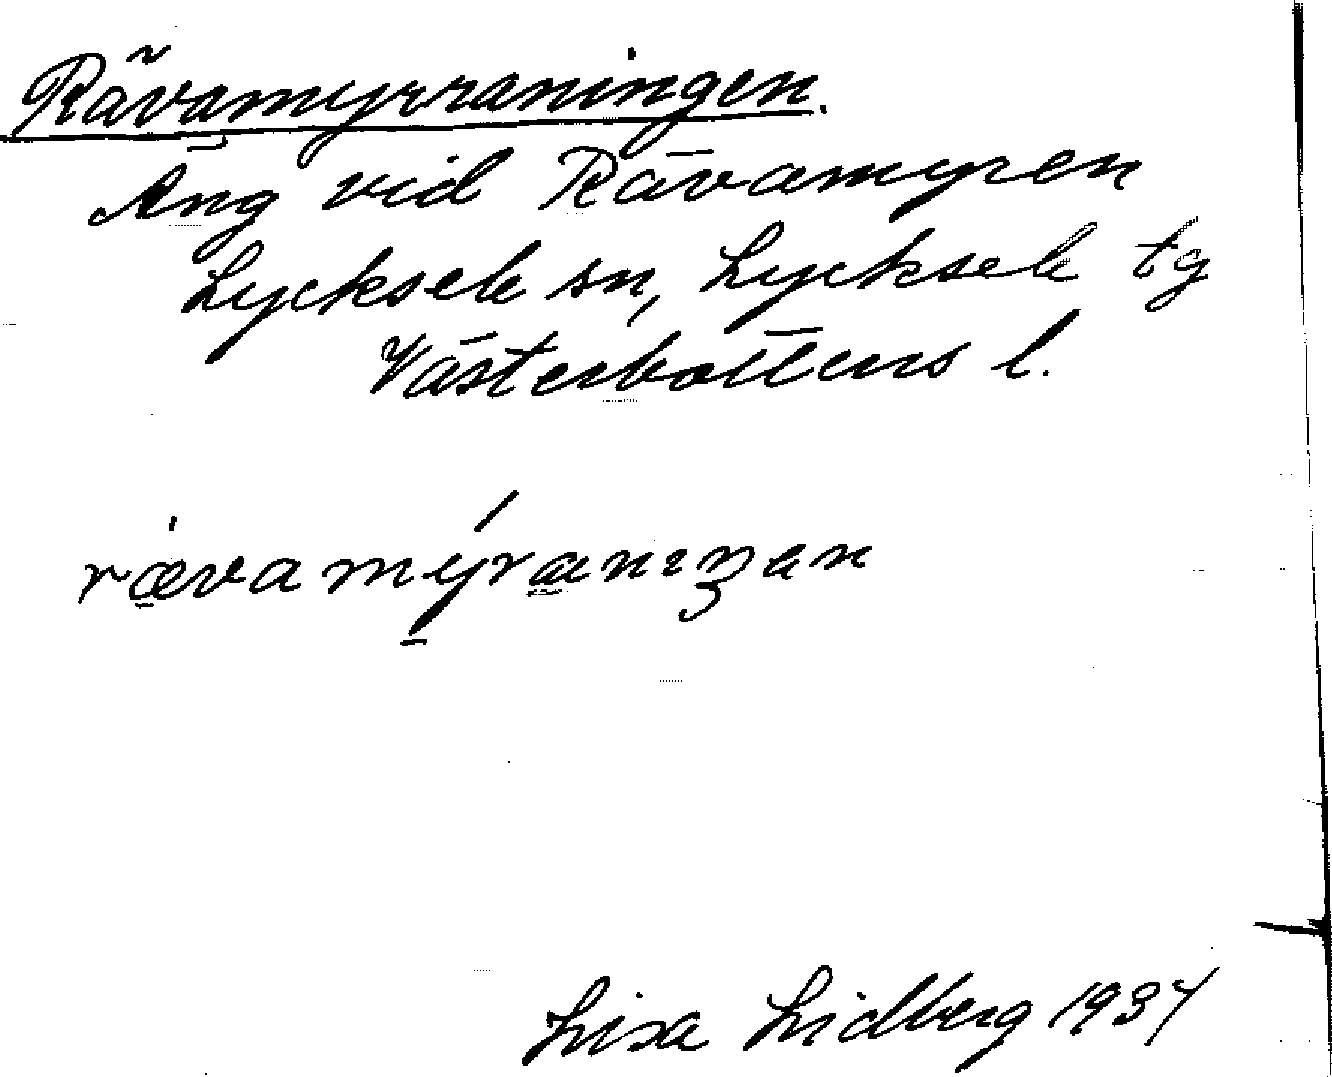 Rävamyrraningen.
Äng vid Rävamyren
Lycksele sn, Lycksele tg
Västerbottens l.
rævamýrænɩŋən
Lisa Lidberg 1937